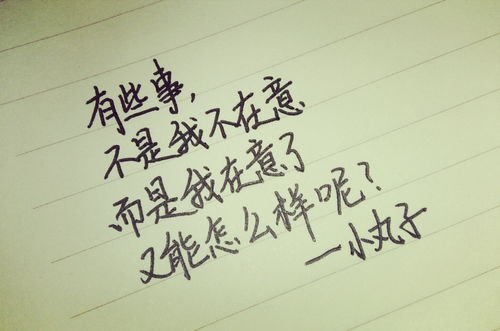 有些事，
不是我不在意
而是我在意了
又能怎么样呢？
一小丸子